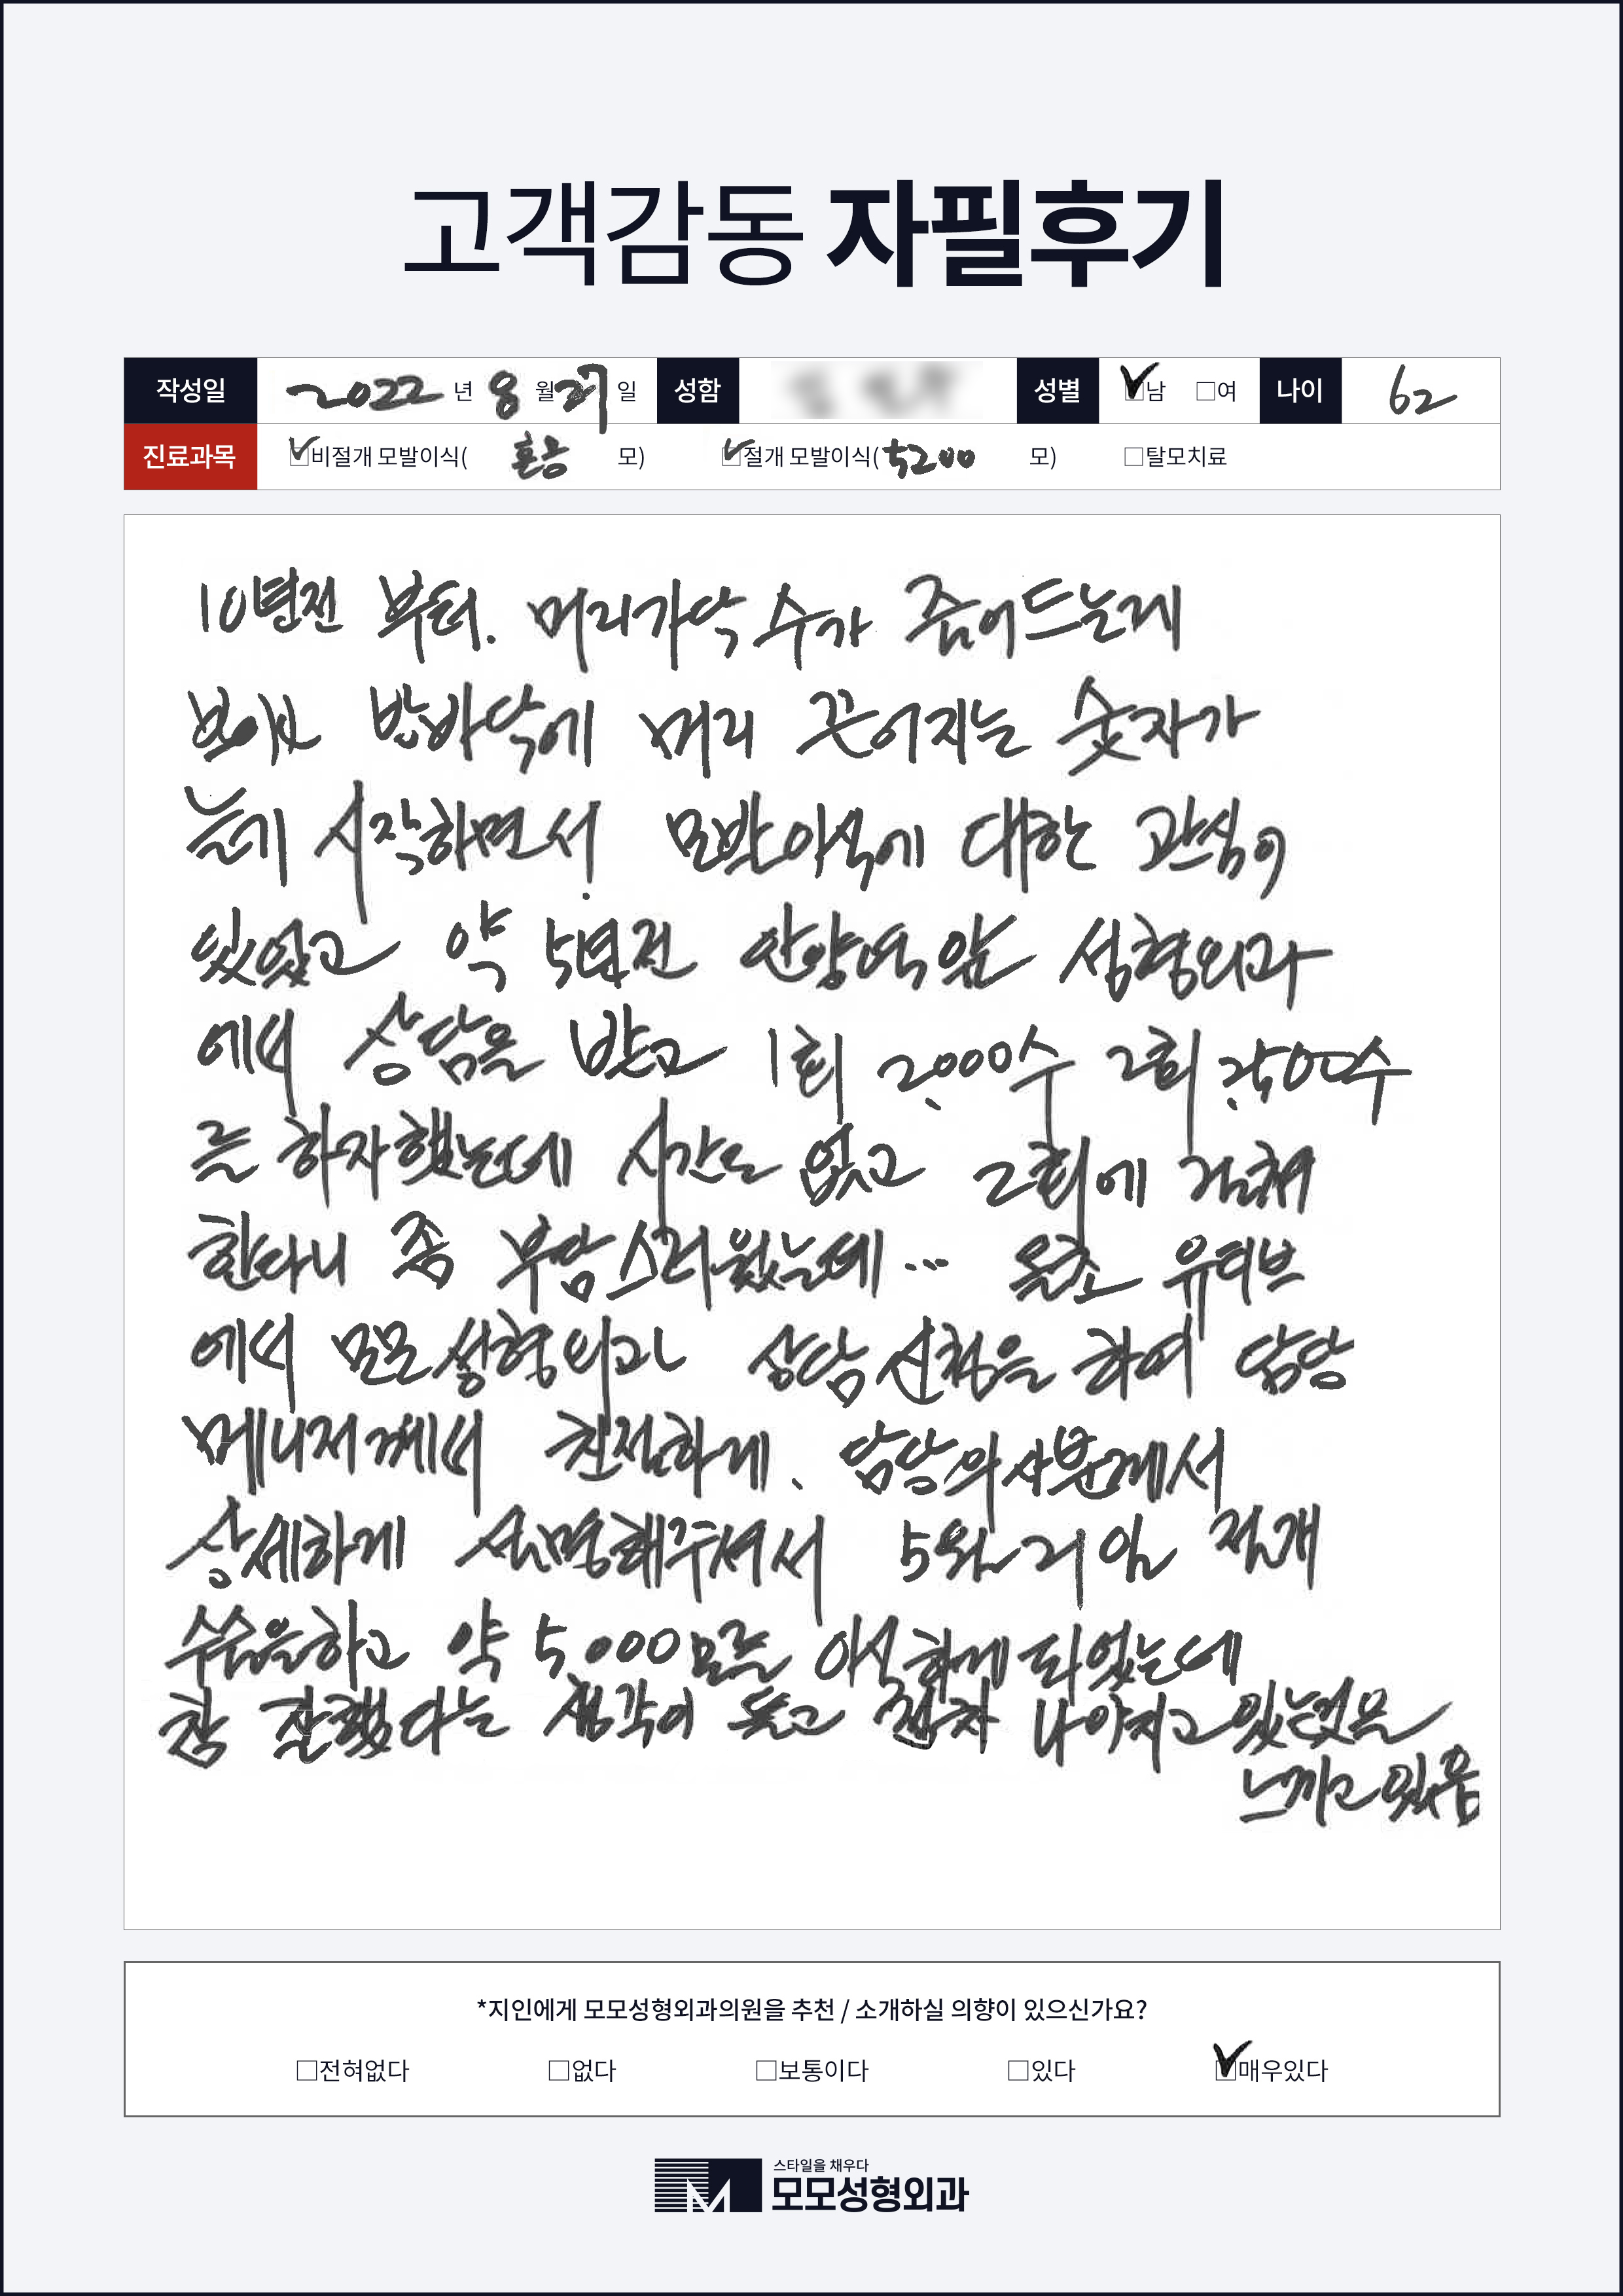 고객감동 자필후기
작성일 2022 년 8 월 27 일 성함 성별 ☑남 □여 나이 62
진료과목 ☑비절개 모발이식( 혼용 모) ☑절개 모발이식( 5200 모) □탈모치료
10년전 부터. 머리가닥 수가 줄어드는게
보이고 방바닥에 머리 끈어지는 숫자가
늘기 시작하면서. 모발이식에 대한 관심이
있었고 약 5년전 안양역앞 성형외과
에서 상담을 받고 1회 2,000수 2회 2,500수
를 하자했는데 시간도 없고 2회에 걸쳐
한다니 좀 부담스러웠는데... 올초 유터브
에서 모모성형외과 상담신청을 하여 담당
메니저께서 친절하게、담당의사분께서
상세하게 설명해주셔서 5월 21일 절개
수술을하고 약 5,000모를 이식하게 되었는데
참 잘했다는 생각이 들고 점차 나아지고 있는것을
느끼고 있음
*지인에게 모모성형외과의원을 추천 / 소개하실 의향이 있으신가요?
□전혀없다 □없다 □보통이다 □있다 ☑매우있다
스타일을 채우다
모모성형외과